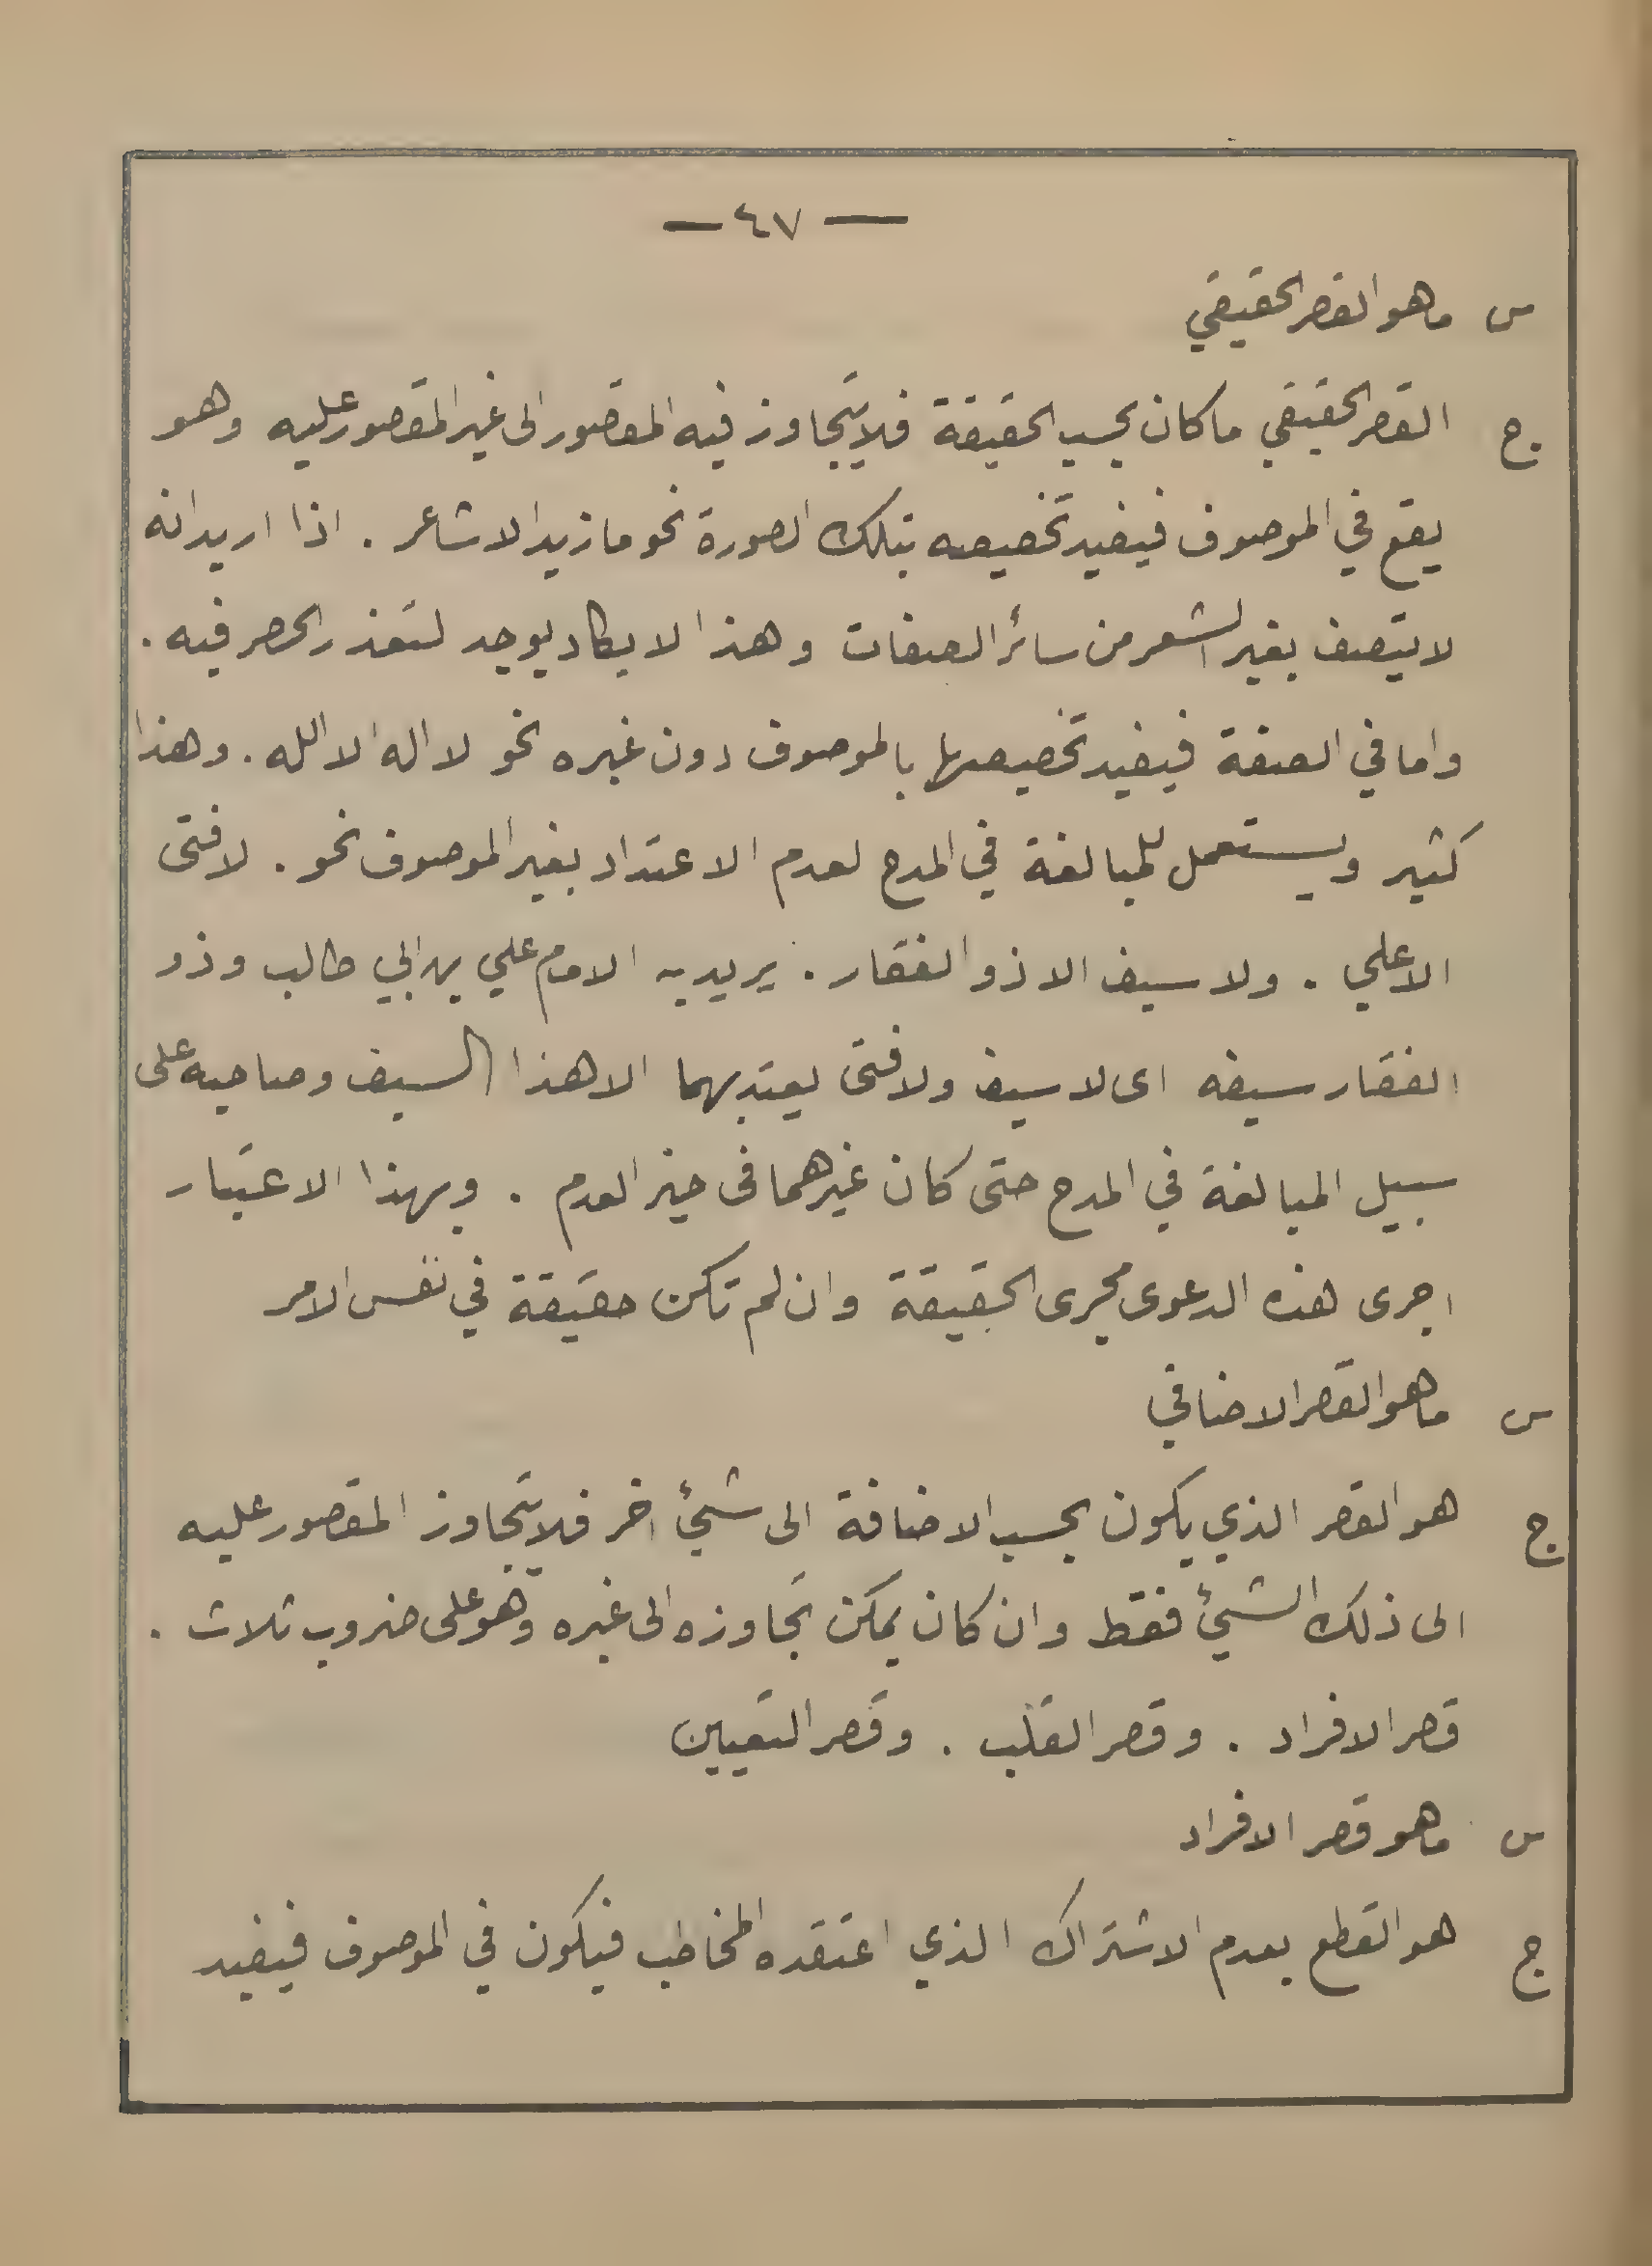 — ٤٧ —
س ما هو القصر الحقيقي
ج القصر الحقيقي ما كان بحسب الحقيقة فلا يتجاوز فيه المقصور الى غير المقصور عليه وهو
يقع في الموصوف فيفيد تخصيصه بتلك الصورة نحو ما زيد الا شاعر . اذا اريد انه
لا يتصف بغير الشعر من سائر الصفات وهذا لا يكاد يوجد لتعذر الحصر فيه .
واما في الصفة فيفيد تخصيصها بالموصوف دون غيره نحو لا اله الا الله . وهذا
كثير ويستعمل للمبالغة في المدح لعدم الاعتداد بغير الموصوف نحو . لا فتى
الا علي . ولا سيف الا ذو الفقار . يريد به الامام علي بن ابي طالب وذو
الفقار سيفه اى لا سيف ولا فتى يعتد بهما الا هذا السيف وصاحبه على
سبيل المبالغة في المدح حتى كان غيرهما فى حيز العدم . وبهذا الاعتبار
اجرى هذه الدعوى مجرى الحقيقة وان لم تكن حقيقة في نفس الامر
س ما هو القصر الاضافي
ج هو القصر الذي يكون بحسب الاضافة الى شيئ اخر فلا يتجاوز المقصور عليه
الى ذلك الشيئ فقط وان كان يمكن تجاوزه الى غيره وهو على ضروب ثلاث .
قصر الافراد . وقصر القلب . وقصر التعيين
س ما هو قصر الافراد
ج هو القطع بعدم الاشتراك الذي اعتقده المخاطب فيكون في الموصوف فيفيد